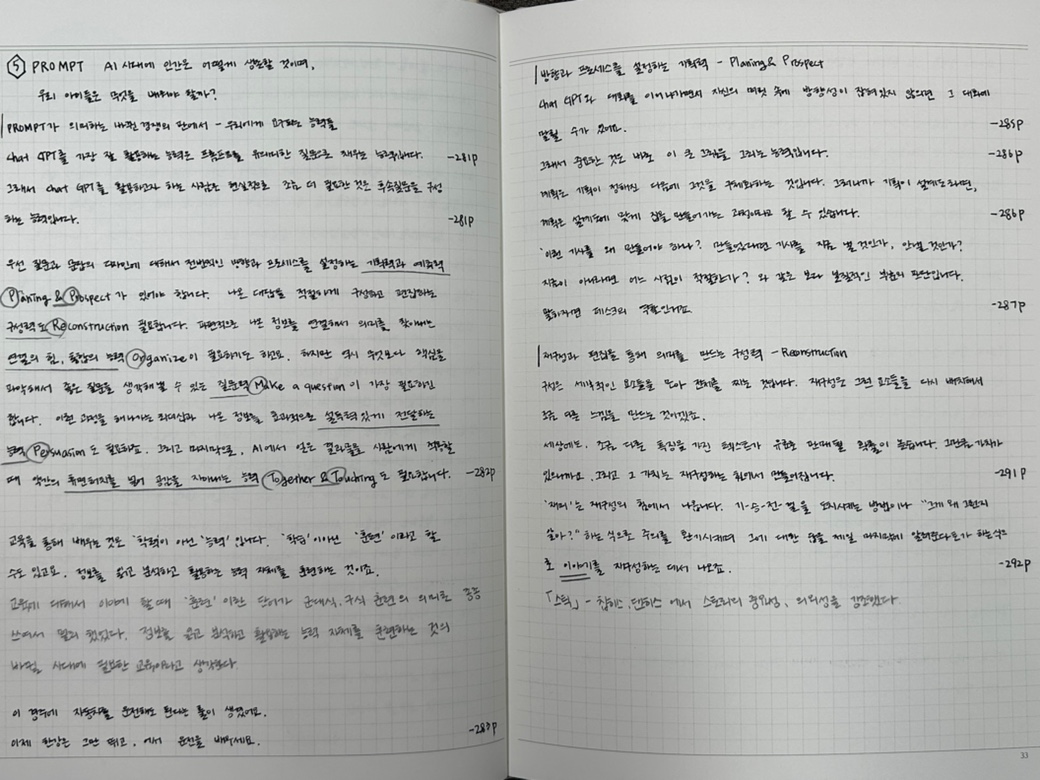 ⑤ PROMPT AI 시대에 인간은 어떻게 생존할 것이며,
우리 아이들은 무엇을 배워야 할까?
PROMPT가 의미하는 바뀐 경쟁의 판에서 - 우리에게 요구되는 능력들
chat GPT를 가장 잘 활용하는 능력은 프롬프트를 유의미한 질문으로 채우는 능력입니다. -281p
그래서 chat GPT를 활용하고자 하는 사람은 현실적으로 조금 더 필요한 것은 후속질문을 구성
하는 능력입니다. -281p
우선 질문과 문답의 디자인에 대해서 전반적인 방향과 프로세스를 설정하는 기획력과 예측력
Planing & Prospect가 있어야 합니다. 나온 대답들을 적절하게 구성하고 편집하는
구성력도 Reconstruction 필요합니다. 파편적으로 나온 정보를 연결해서 의미를 찾아내는
연결의 힘, 통합의 능력 Organize이 필요하기도 하고요. 하지만 역시 무엇보다 핵심을
파악해서 좋은 질문을 생각해낼 수 있는 질문력 Make a question이 가장 필요하긴
합니다. 이런 과정을 해나가는 리더십과 나온 정보를 효과적으로 설득력있게 전달하는
능력 Persuasion도 필요하죠. 그리고 마지막으로, AI에서 얻은 결과물을 사람에게 적용할
때 약간의 휴먼터치를 넣어 공감을 자아내는 능력 Together & Touching도 필요합니다. -282p
교육을 통해 배우는 것도 '학력'이 아닌 '능력'입니다. '학습'이 아닌 '훈련'이라고 할
수도 있고요. 정보를 읽고 분석하고 활용하는 능력 자체를 훈련하는 것이죠.
교육에 대해서 이야기 할 때 '훈련'이란 단어가 군대식, 구식 훈련의 의미로 종종
쓰여서 멀리 했었다. 정보를 읽고 분석하고 활용하는 능력 자체를 훈련하는 것의
바뀔 시대에 필요한 교육이라고 생각한다.
이 경주에 자동차를 운전해도 된다는 룰이 생겼어요.
이제 한강은 그만 뛰고, 에서 운전을 배우세요. -283p
방향과 프로세스를 설정하는 기획력 - Planing & Prospect
chat GPT와 대화를 이어나가면서 자신의 머릿 속에 방향성이 잡혀있지 않으면 그 대화에
말릴 수가 있어요. -285p
그래서 중요한 것은 바로 이 큰 그림을 그리는 능력입니다. -286p
계획은 기획이 정해진 다음에 그것을 구체화하는 것입니다. 그러니까 기획이 설계도라면,
계획은 설계도에 맞게 집을 만들어가는 과정이라고 할 수 있습니다. -286p
'이런 기사를 왜 만들어야 하나? 만들었다면 기사를 지금 낼 것인가, 안낼 것인가?
지금이 아니라면 어느 시점이 적절한가?'와 같은 보다 본질적인 부분의 판단입니다.
말하자면 데스크의 역할인거죠. -287p
재구성과 편집을 통해 의미를 만드는 구성력 - Reconstruction
구성은 세부적인 요소들을 모아 전체를 짜는 것입니다. 재구성은 그런 요소들을 다시 배치해서
조금 다른 느낌을 만드는 것이겠죠.
세상에는, 조금 다른 특징을 가진 텍스트가 유료로 판매될 확률이 높습니다. 그만큼 가치가
있으니까요. 그리고 그 가치는 재구성하는 힘에서 만들어집니다. -291p
'재미'는 재구성의 힘에서 나옵니다. 기-승-전-결을 도치시키는 방법이나 "그게 왜 그런지
알아?" 하는 식으로 주의를 환기시키며 그에 대한 답을 제일 마지막에 알려준다든가 하는 식으
로 이야기를 재구성하는 데서 나오죠. -292p
「스틱」 - 칩히스, 댄히스 에서 스토리의 중요성, 의외성을 강조했다.
33